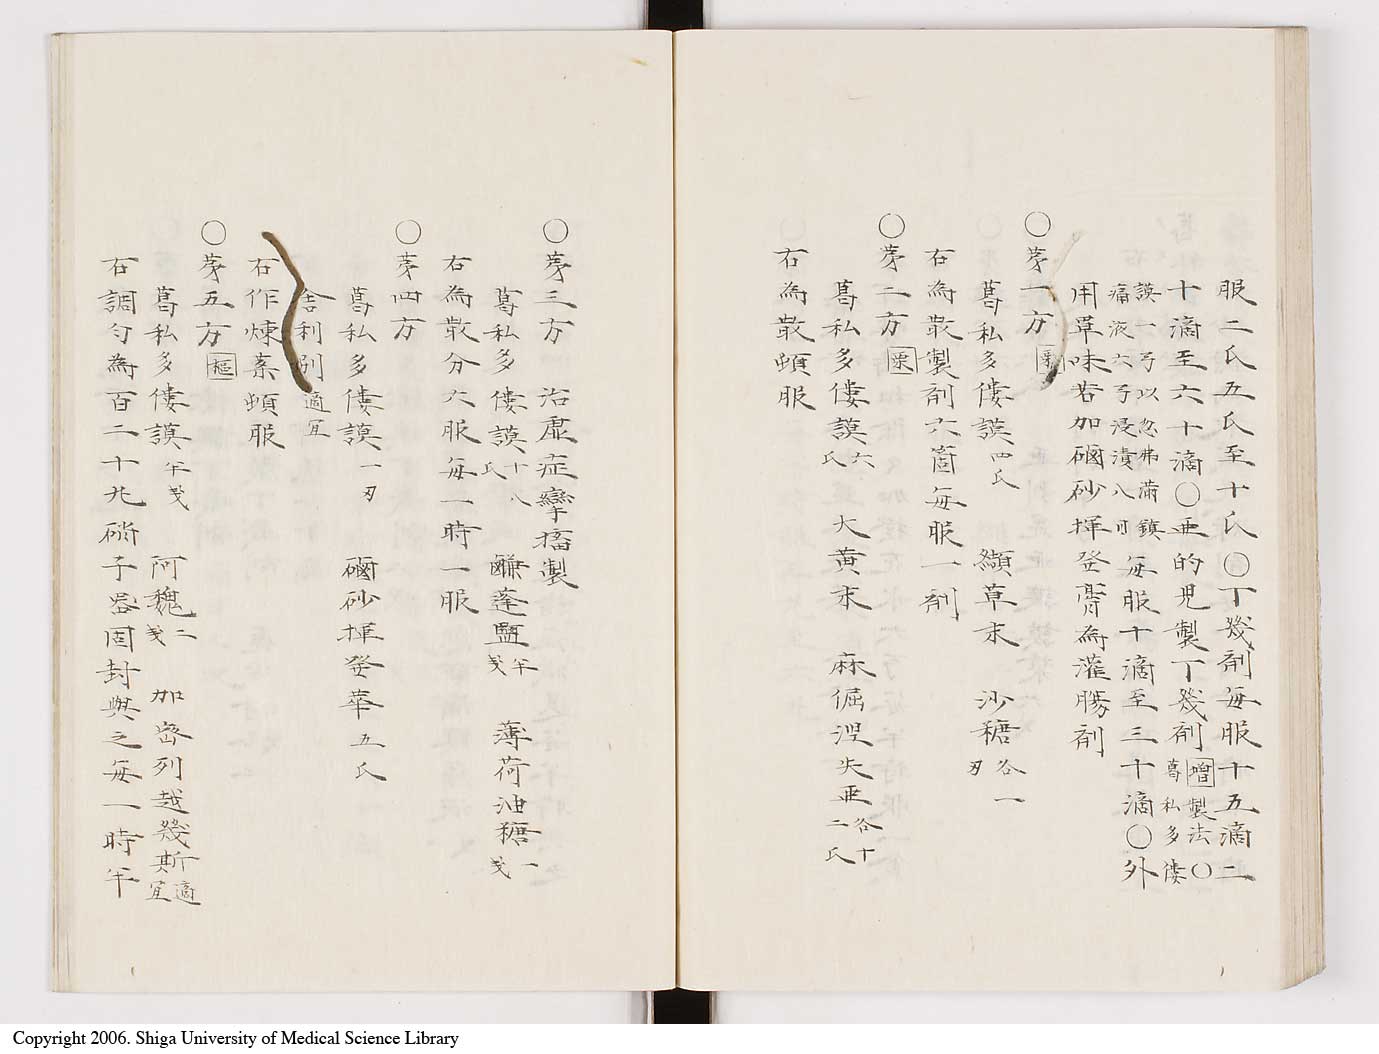 服二氏五氏至十氏〇丁幾剤毎服十五滴二
十滴至六十滴〇亜的児製丁幾剤 増 製法〇葛私多僂
謨一弓以忽弗満鎮痛液六弓浸漬八日毎服十滴至三十滴〇外
用単味若加磠砂揮発膏為灌腸剤
〇第一方
葛私多僂謨四氏 纈草末 沙糖各一刃
右為散製剤六箇毎服一剤
〇第二方
葛私多僂謨六氏 大黄末 麻倔涅失亜各十二氏
右為散頓服
〇第三方 治虚症攣搐製
葛私多僂謨十八氏 鹻蓬塩半戔 薄荷油糖一戔
右為散分六服毎一時一服
〇第四方
葛私多僂謨一刃 磠砂揮発華五氏
舎利別適宜
右作煉薬頓服
〇第五方 樞
葛私多僂謨半戔 阿魏二戔 加密列越幾斯適宜
右調匀為百二十丸硝子器固封与之毎一時半
Copyright 2006. Shiga University of Medical Science Library